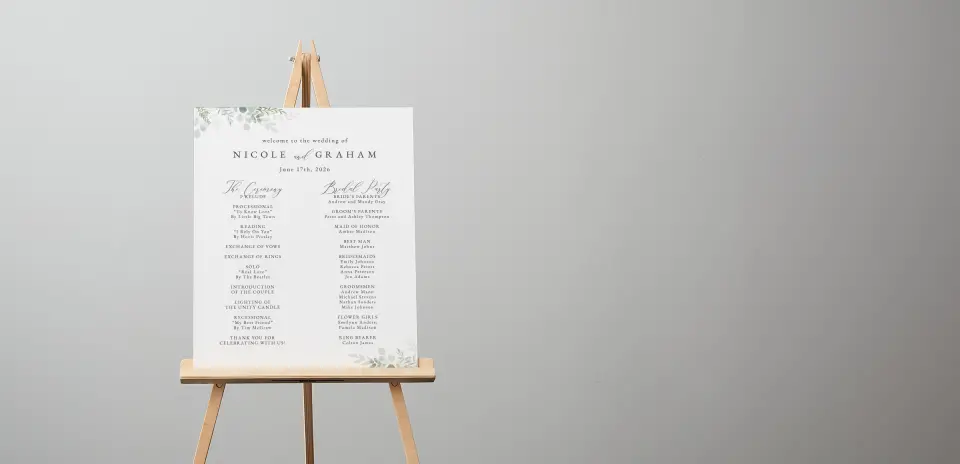 welcome to the wedding of
NICOLE and GRAHAM
June 17th, 2026
The Ceremony
PRELUDE
PROCESSIONAL
"To Know Love"
By Little Big Town
READING
"I Rely On You"
By Presley
EXCHANGE OF VOWS
EXCHANGE OF RINGS
SOLO
"Real Love"
By The Beatles
INTRODUCTION
OF THE COUPLE
LIGHTING OF
THE UNITY CANDLE
RECESSIONAL
"My Best Friend"
By Tim McGraw
THANK YOU FOR
CELEBRATING WITH US!
Bridal Party
BRIDE'S PARENTS
Andrew and Wendy Gray
GROOM'S PARENTS
Peter and Ashley Thompson
MAID OF HONOR
Amber Madison
BEST MAN
Matthew Johns
BRIDESMAIDS
Emily Johnson
Rebecca
Anna Peterson
Jen Adams
GROOMSMEN
Andrew
Michael Stevens
Nathan Sanders
Mike Johnson
FLOWER GIRLS
Pamela Madison
RING BEARER
Colson James